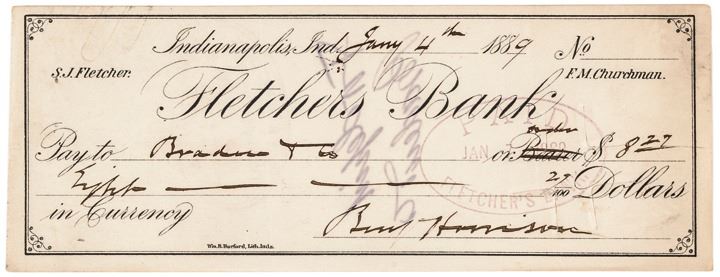 Indianapolis, Ind. Jany 4th 1889 No
S.J. Fletcher. F.M. Churchman.
Fletchers Bank
PAID
JAN
FLETCHER'S
Pay to Braden & Co or order Bearer $ 8 27
Eight 27/100 Dollars
in Currency
Benj Harrison
Wm. B. Burford, Lith. Inda.